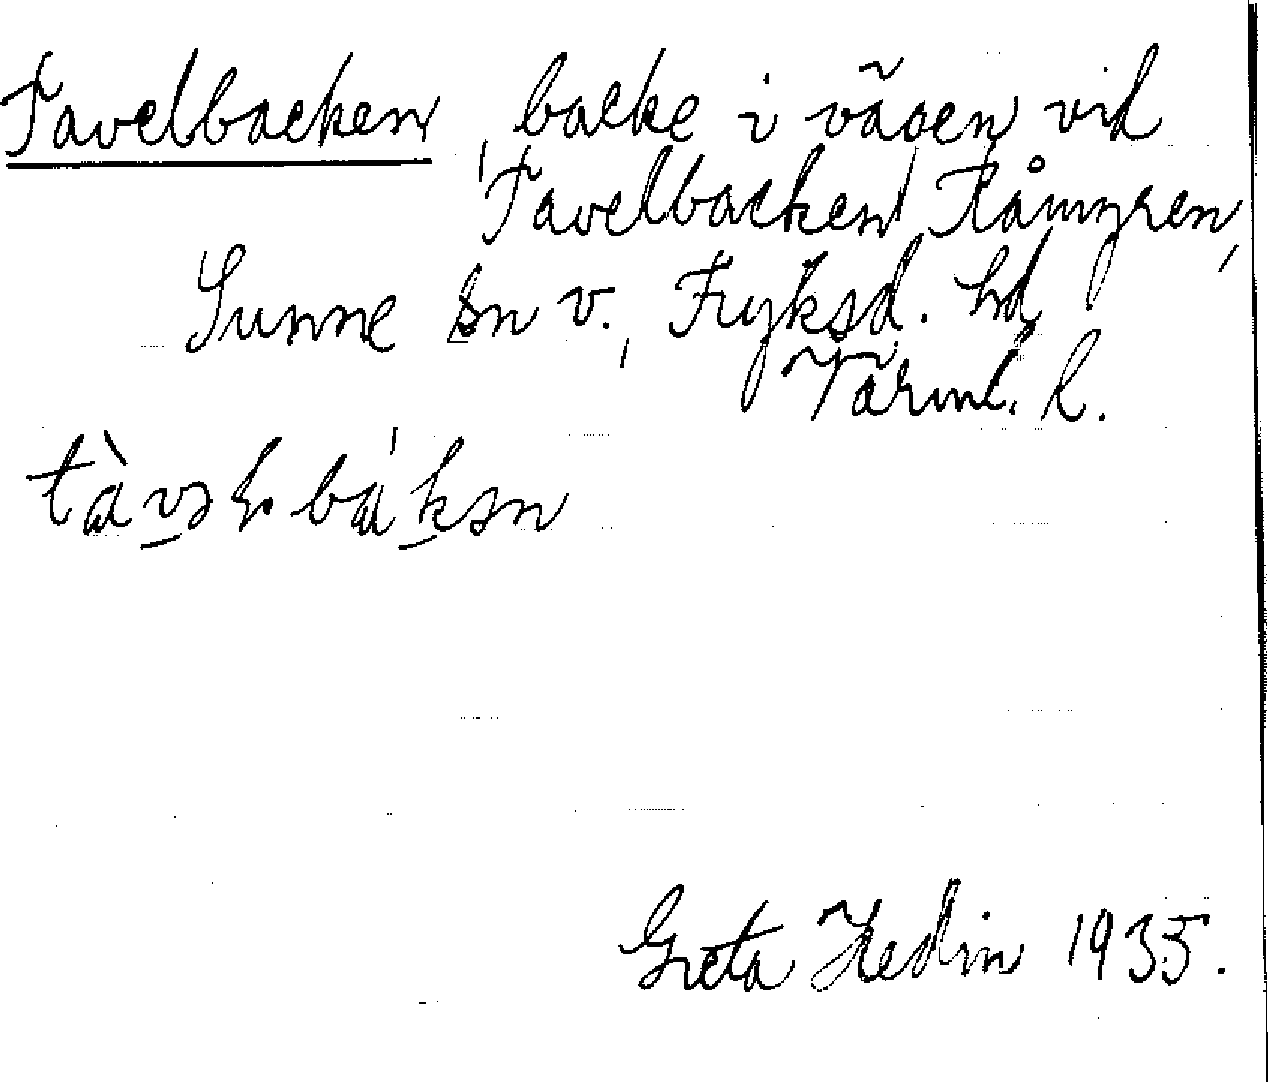 Tavelbacken, backe i vägen vid
Tavelbacken, Råmyren,
Sunne sn v., Fryksd. hd
Värml. l.
Greta Hedin 1935.